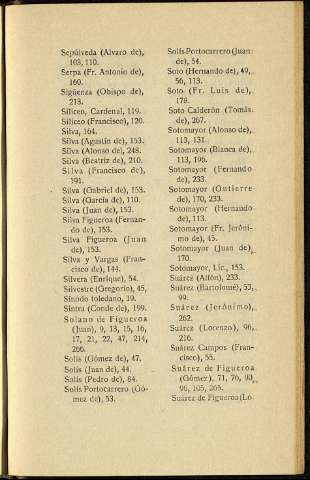 Sepúlveda (Alvaro de),
103, 110.
Serpa (Fr. Antonio de),
160.
Sigüenza (Obispo de),
213.
Siliceo, Cardenal, 119.
Siliceo (Francisco), 120.
Silva, 164.
Silva (Agustín de), 153.
Silva (Alonso de), 248.
Silva (Beatriz de), 210.
Silva (Francisco de),
191.
Silva (Gabriel de), 153.
Silva (García de), 110.
Silva (Juan de), 153.
Silva Figueroa (Fernan-
do de), 153.
Silva Figueroa (Juan
de), 153.
Silva y Vargas (Fran-
cisco de), 144.
Silvera (Enrique), 54.
Silvestre (Gregorio), 45,
Sínodo toledano, 19.
Sintra (Conde de), 199.
Solano de Figueroa
(Juan), 9, 13, 15, 16,
17, 21, 22, 47, 214,
266.
Solís (Gómez de), 47.
Solís (Juan de), 44.
Solís (Pedro de), 84.
Solís Portocarrero (Gó-
mez de), 53.
Solís Portocarrero (Juan
de), 54.
Soto (Hernando de), 49,
56, 113.
Soto (Fr. Luis de),
178.
Soto Calderón (Tomás
de), 267.
Sotomayor (Alonso de),
113, 131.
Sotomayor (Blanca de),
113, 196.
Sotomayor (Fernando
de), 233.
Sotomayor (Gutierre
de), 170, 233.
Sotomayor (Hernando
de), 113.
Sotomayor (Fr. Jeróni-
mo de), 45.
Sotomayor (Juan de),
170.
Sotomayor, Lic., 153.
Suárez (Alfón), 233.
Suárez (Bartolomé), 53,
99.
Suárez (Jerónimo),
262.
Suárez (Lorenzo), 96,
216.
Suárez Campos (Fran-
cisco), 55.
Suárez de Figueroa
(Gómez), 71, 76, 93,
96, 105, 265.
Suárez de Figueroa (Lo